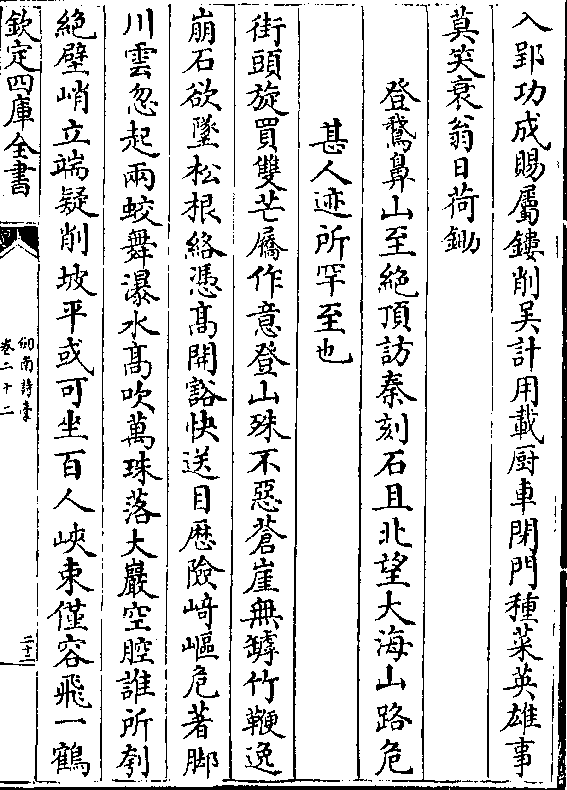 入郢功成賜屬鏤削吳計用載厨車閉門種菜英雄事
莫笑衰翁日荷鋤
登鵞鼻山至絶頂訪秦刻石且北望大海山路危
甚人迹所罕至也
街頭旋買雙芒屩作意登山殊不惡蒼崖無罅竹鞭逸
崩石欲墜松根絡憑髙開豁快送目歴險﨑嶇危著脚
川雲忽起兩蛟舞瀑水髙吹萬珠落大巖空腔誰所刳
絶壁峭立端疑削坡平或可坐百人峽束僅容飛一鶴
欽定四庫全書
劒南詩稾
卷二十二
二十二